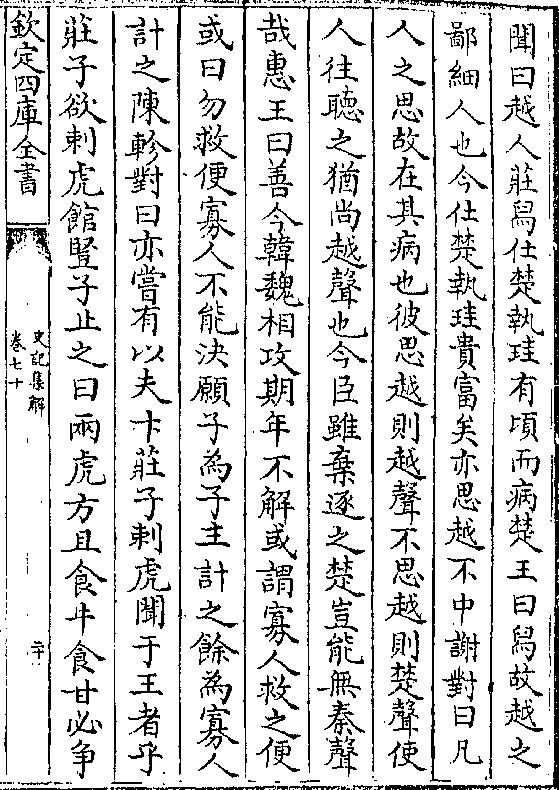 聞曰越人莊舄仕楚執珪有頃而病楚王曰舄故越之
鄙細人也今仕楚執珪貴富矣亦思越不中謝對曰凡
人之思故在其病也彼思越則越聲不思越則楚聲使
人往聽之猶尚越聲也今臣雖棄逐之楚豈能無秦聲
哉惠王曰善今韓魏相攻期年不解或謂寡人救之便
或曰勿救便寡人不能決願子為子主計之餘為寡人
計之陳軫對曰亦嘗有以夫卞莊子刺虎聞于王者乎
莊子欲刺虎館豎子止之曰兩虎方且食牛食甘必爭
欽定四庫全書
史記集解
卷七十
二十